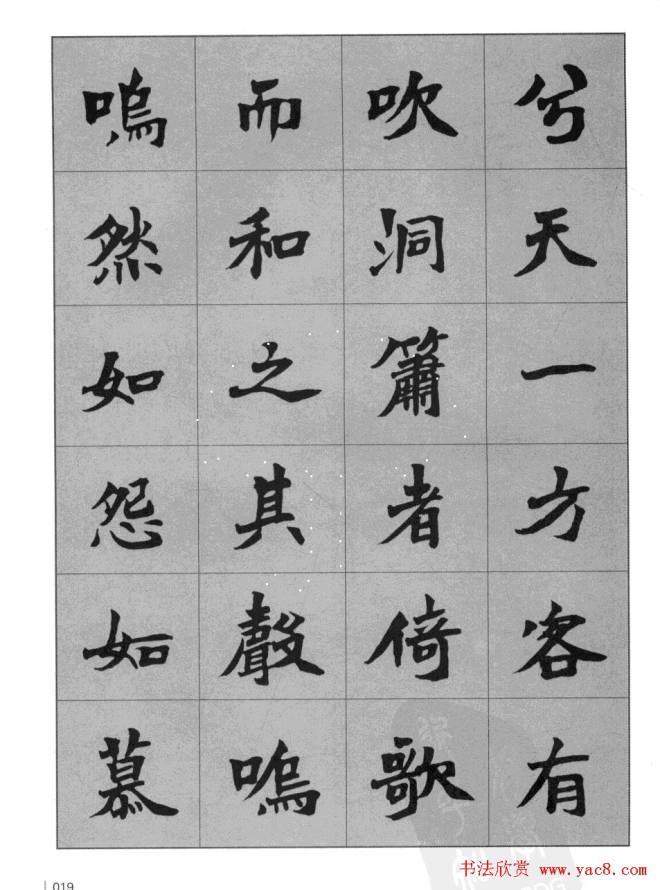 兮天一方客有
吹洞簫者倚歌
而和之其聲嗚
嗚然如怨如慕
019
书法欣赏 www.yac8.com